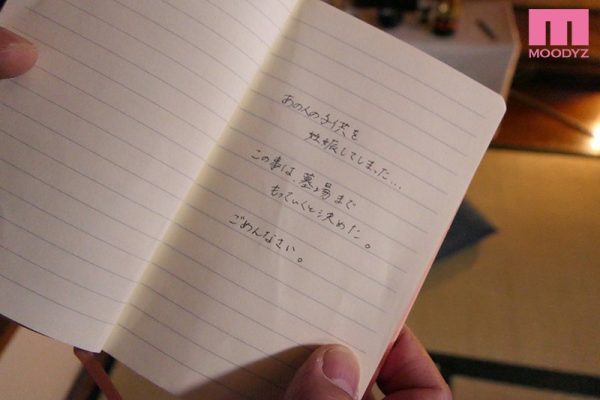 MOODYZ
あの人の子供を
妊娠してしまった…
この事は、墓場まで
もっていくと決めた。
ごめんなさい。